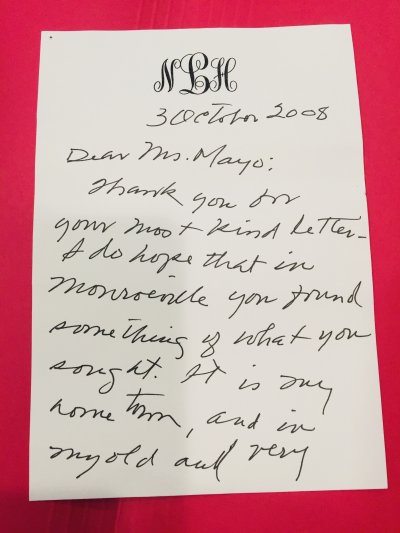 NLH
3 October 2008
Dear Ms. Mayo:
Thank you for
your most kind letter-
I do hope that in
Monroeville you found
something of what you
sought. It is my
home town, and in
my old and very